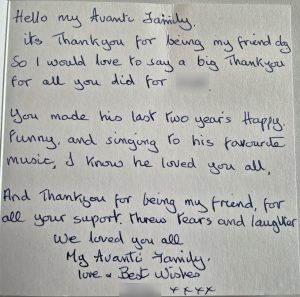 Hello my Avanti Family.
its Thankyou for being my friend dg
So I would love to say a big Thankyou
for all you did for
You made his last two year's Happy.
Funny, and singing to his favourite
music, I know he loved you all,
And Thankyou for being my friend, for
all your suport. Threw tears and laughter
We loved you all
My Avanti Family.
love & Best Wishes
xxxx